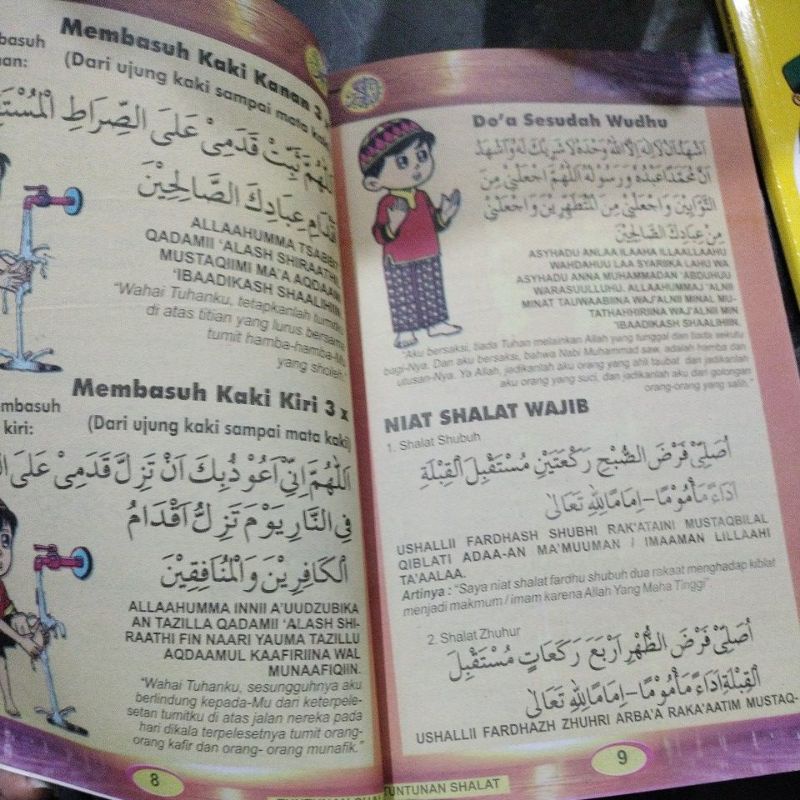 Membasuh Kaki Kanan 3
(Dari ujung kaki sampai mata kaki
basuh
اَللّٰهُمَّ ثَبِّتْ قَدَمِىْ عَلَى الصِّرَاطِ الْمُسْتَ
عِبَادِكَ الصَّالِحِيْنَ
ALLAAHUMMA TSABBIT
QADAMII 'ALASH SHIRAATHI
MUSTAQIIMI MA'A AQDAAM
'IBAADIKASH SHAALIHIIN.
"Wahai Tuhanku, tetapkanlah tumit
di atas titian yang lurus bersama
tumit hamba-hamba-Mu
yang sholeh."
Membasuh Kaki Kiri 3 x
(Dari ujung kaki sampai mata kaki)
mbasuh
kiri:
اَللّٰهُمَّ اِنِّىْ اَعُوْذُبِكَ اَنْ تَزِلَّ قَدَمِىْ عَلَى
فِى النَّارِ يَوْمَ تَزِلُّ اَقْدَامُ
الْكَافِرِيْنَ وَالْمُنَافِقِيْنَ
ALLAAHUMMA INNII A'UUDZUBIKA
AN TAZILLA QADAMII 'ALASH SHI-
RAATHI FIN NAARI YAUMA TAZILLU
AQDAAMUL KAAFIRIINA WAL
MUNAAFIQIIN.
"Wahai Tuhanku, sesungguhnya aku
berlindung kepada-Mu dari keterpele-
setan tumitku di atas jalan nereka pada
hari dikala terpelesetnya tumit orang-
orang kafir dan orang- orang munafik."
8
Do'a Sesudah Wudhu
اَشْهَدُ اَنْ لَا اِلٰهَ اِلَّا اللهُ وَحْدَهُ لَا شَرِيْكَ لَهُ وَاَشْهَدُ
اَنَّ مُحَمَّدًا عَبْدُهُ وَرَسُوْلُهُ اَللّٰهُمَّ اجْعَلْنِىْ مِنَ
التَّوَّابِيْنَ وَاجْعَلْنِىْ مِنَ الْمُتَطَهِّرِيْنَ وَاجْعَلْنِىْ
مِنْ عِبَادِكَ الصَّالِحِيْنَ
ASYHADU ANLAA ILAAHA ILLAALLAAHU
WAHDAHUU LAA SYARIIKA LAHU WA
ASYHADU ANNA MUHAMMADAN 'ABDUHUU
WARASUULLUHU. ALLAAHUMMAJ 'ALNII
MINAT TAUWAABIINA WAJ'ALNII MINAL MU-
TATHAHHIRIINA WAJ'ALNII MIN
'IBAADIKASH SHAALIHIIN.
"Aku bersaksi, tiada Tuhan melainkan Allah yang tunggal dan tiada sekutu
bagi-Nya. Dan aku bersaksi, bahwa Nabi Muhammad saw. adalah hamba dan
utusan-Nya. Ya Allah, jadikanlah aku orang yang ahli taubat, dan jadikanlah
aku orang yang suci, dan jadikanlah aku dari golongan
orang-orang yang salih."
NIAT SHALAT WAJIB
1. Shalat Shubuh
اُصَلِّىْ فَرْضَ الصُّبْحِ رَكْعَتَيْنِ مُسْتَقْبِلَ الْقِبْلَةِ
اَدَاءً مَأْمُوْمًا - اِمَامًا لِلّٰهِ تَعَالٰى
USHALLII FARDHASH SHUBHI RAK'ATAINI MUSTAQBILAL
QIBLATI ADAA-AN MA'MUUMAN / IMAAMAN LILLAAHI
TA'AALAA.
Artinya : "Saya niat shalat fardhu shubuh dua rakaat menghadap kiblat
menjadi makmum / imam karena Allah Yang Maha Tinggi".
2. Shalat Zhuhur
اُصَلِّىْ فَرْضَ الظُّهْرِ اَرْبَعَ رَكَعَاتٍ مُسْتَقْبِلَ
الْقِبْلَةِ اَدَاءً مَأْمُوْمًا - اِمَامًا لِلّٰهِ تَعَالٰى
USHALLII FARDHAZH ZHUHRI ARBA'A RAKA'AATIM MUSTAQ-
9
TUNTUNAN SHALAT